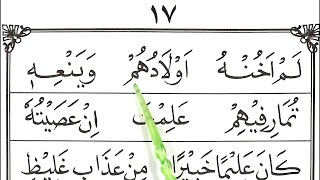 ١٧
لَمْ اَخُنْهُ اَوْلَادُهُمْ وَيَنْعِهٖ
تُمَارِفِيْهِمْ عَلِمْتَ اِنْ عَصَيْتُهٗ
كَانَ عَلِيْمًا خَبِيْرًا مِنْ عَذَابٍ غَلِيْظٍ